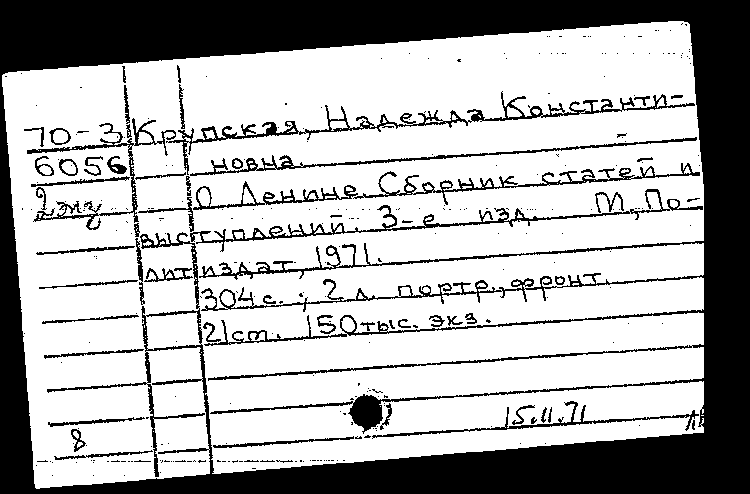 70-3 Крупская, Надежда Константи-
6056 новна.
2 экз О Ленине. Сборник статей и
выступлений. 3-е изд. М, По-
литиздат, 1971.
304 с.; 2 л. портр., фронт.
21 cm. 150 тыс. экз.
15.11.71
8